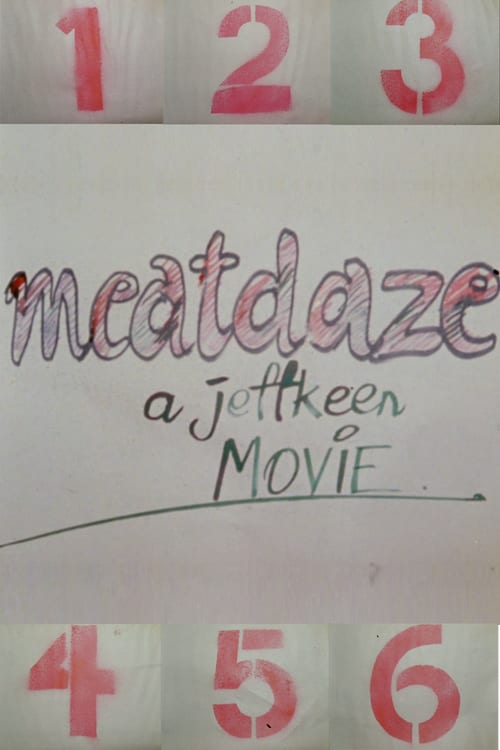 1 2 3
meatdaze
a jeffkeen
MOVIE.
4 5 6